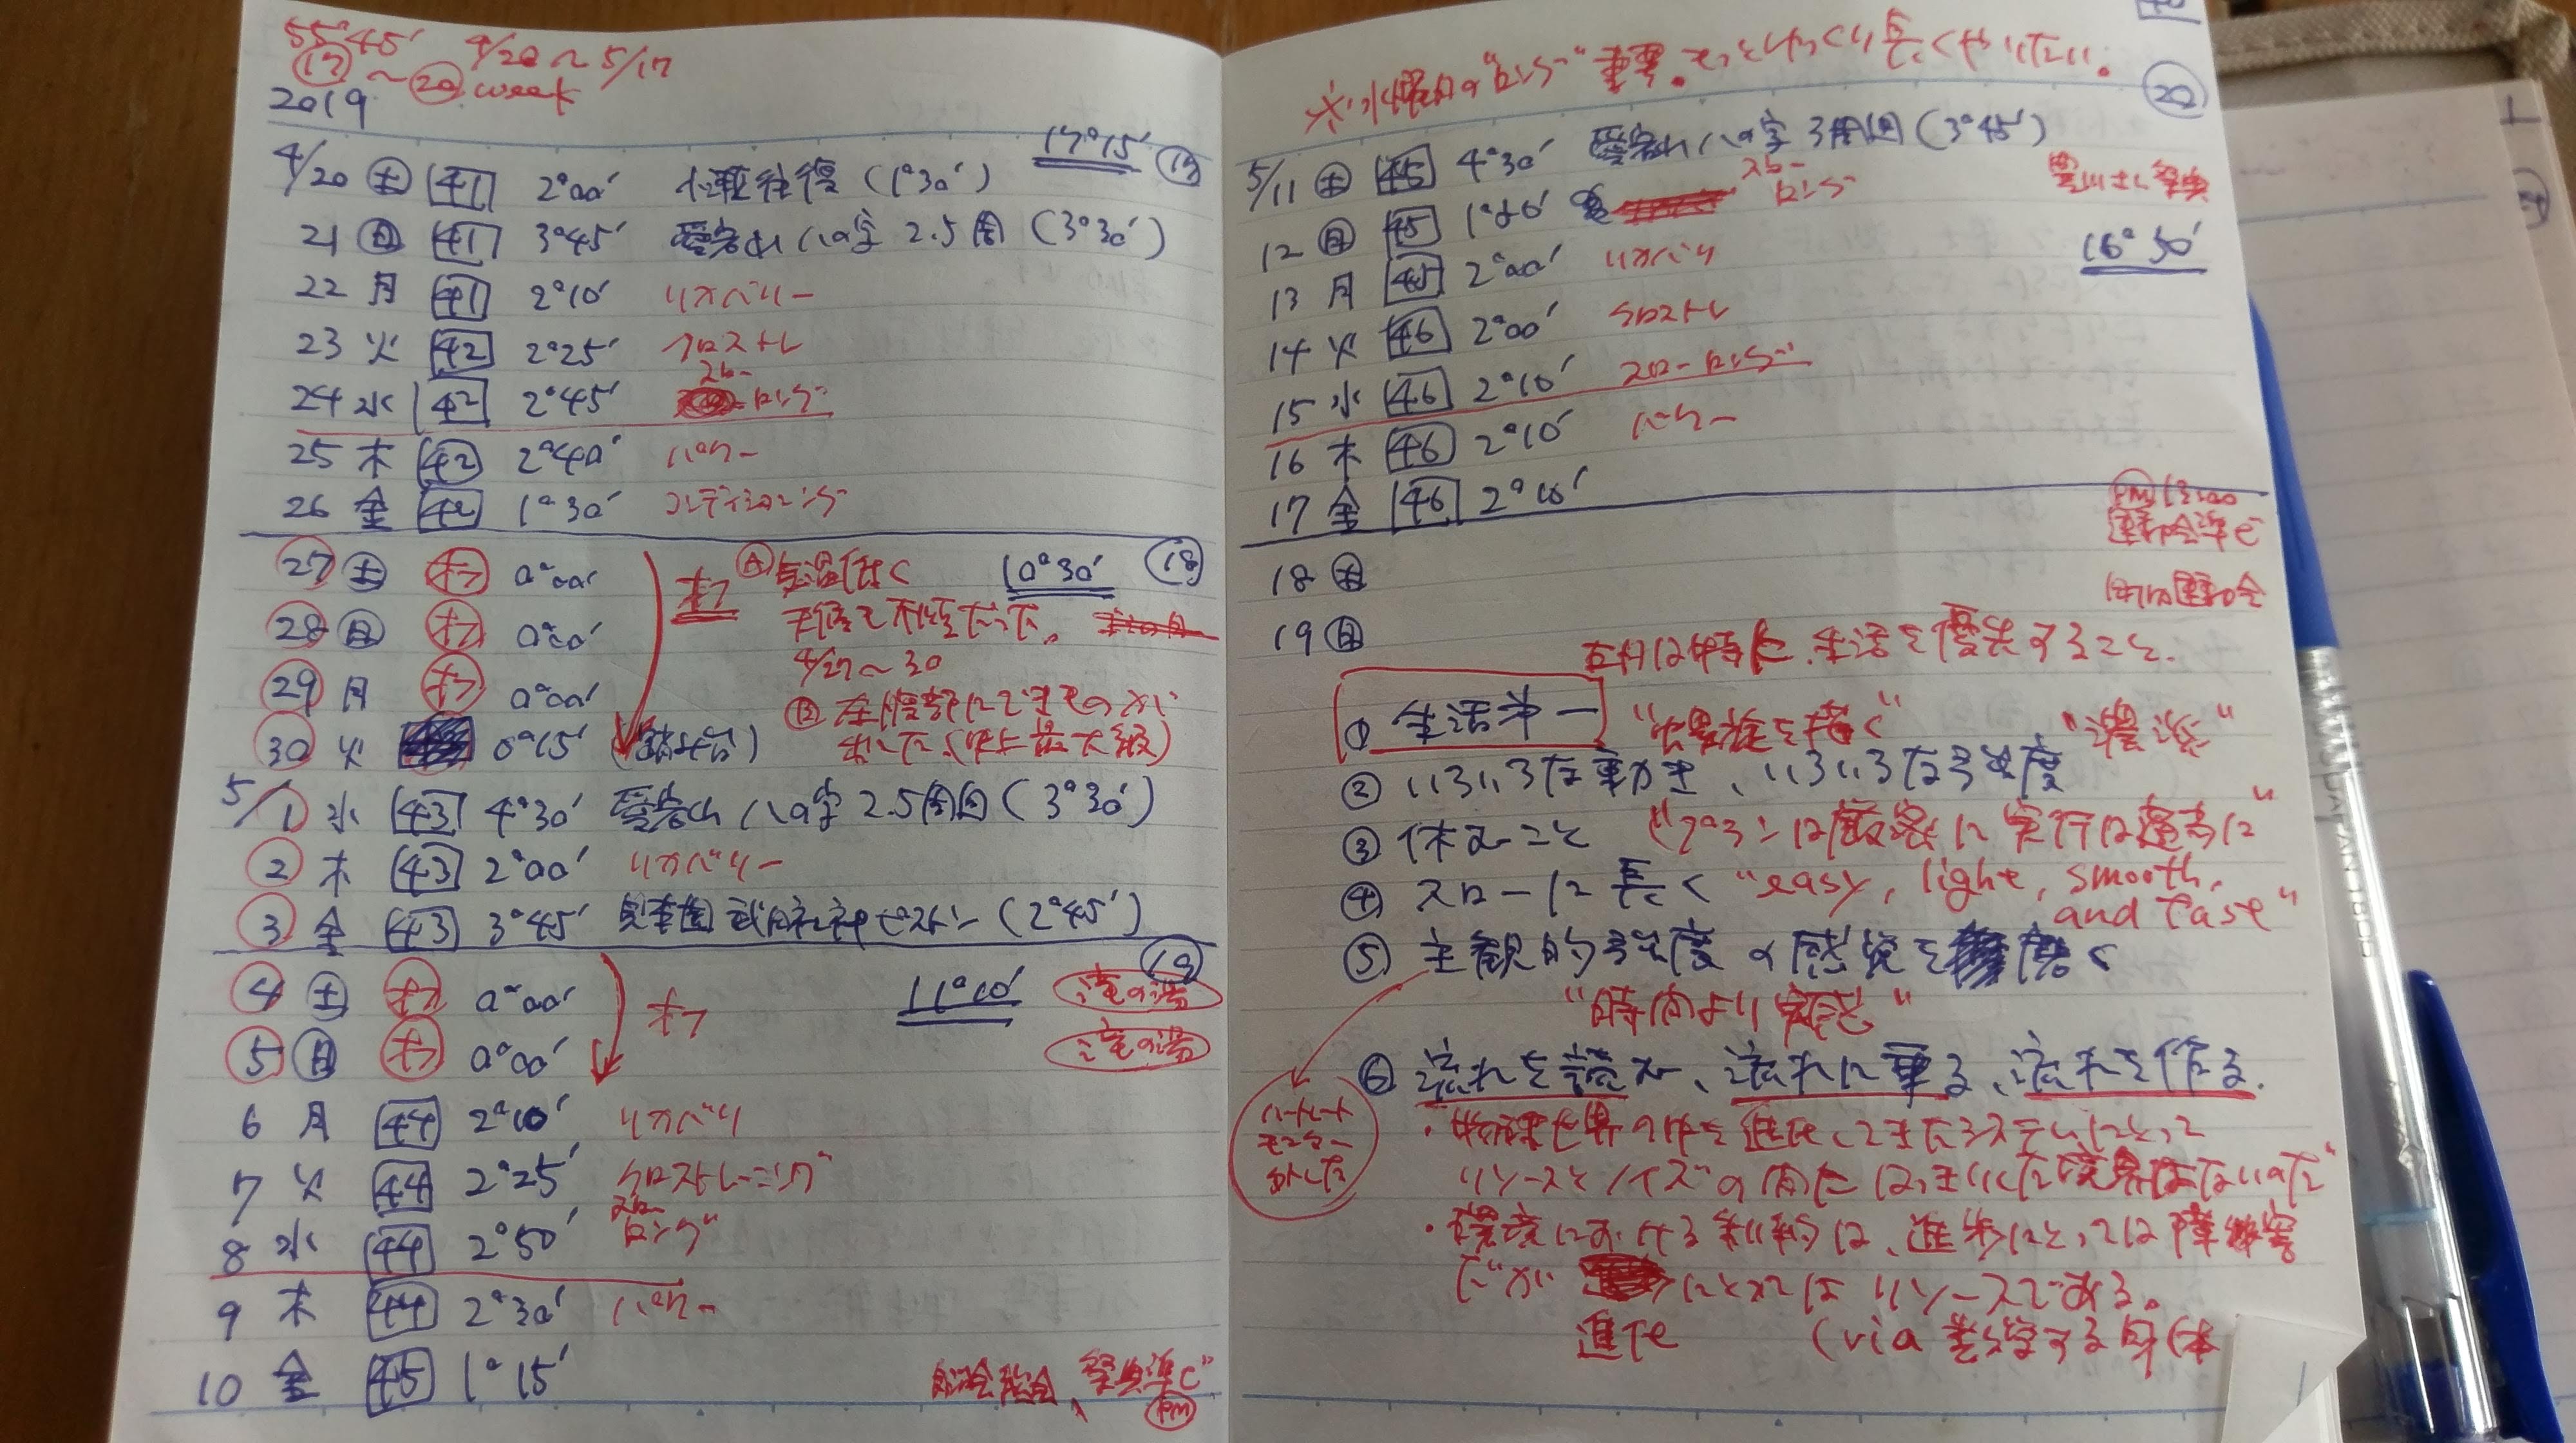 55°45' 4/20～5/17
⑰～⑳ week
2019
17°15' ⑰
4/20 土 41 2°00' 小 往復 (1°30')
21 日 41 3°45' 愛宕山 八の字 2.5周 (3°30')
22 月 41 2°10' リカバリー
23 火 42 2°25' クロストレ
24 水 42 2°45' スロー ロング
25 木 42 2°40' パワー
26 金 42 1°30' コンディショニング
27 土 オフ 0°00' オフ Ⓐ気温低く 10°30' ⑱
28 日 オフ 0°00' 天候も不順だった。
29 月 オフ 0°00' 4/27～30
30 火 0°15' Ⓑ 左腰部にできものが
(史上最大級)
5/1 水 43 4°30' 愛宕山 八の字 2.5周回 (3°30')
2 木 43 2°00' リカバリー
3 金 43 3°45' 神社 ピストン (2°45')
4 土 オフ 0°00' オフ 11°10' ⑲ 滝の湯
5 日 オフ 0°00' 滝の湯
6 月 44 2°10' リカバリ
7 火 44 2°25' クロストレーニング
8 水 44 2°50' スロー ロング
9 木 44 2°30' パワー
10 金 45 1°15'
総会、祭典準び PM
※水曜日の"ロング"重要。もっとゆっくり長くやりたい。
⑳
5/11 土 45 4°30' 愛宕山 八の字 3周回 (3°45')
12 日 45 スロー ロング 祭典
13 月 45 2°00' リカバリ 16°30'
14 火 46 2°00' クロストレ
15 水 46 2°10' スローロング
16 木 46 2°10' パワー
17 金 46 2°10'
PM 13:00
運動会準び
18 土 運動会
19 日
五月は特に、生活を優先すること。
① 生活第一
② いろいろな動き、いろいろな強度
③ 休むこと "プランは厳密に 実行は適当に"
④ スローに長く "easy, light, smooth,
and fast"
⑤ 主観的強度の感覚を磨く
"時間より実感"
⑥ 流れを読み、流れに乗る、流れを作る.
ハートレート
モニター
外した
・物理世界の中を進化してきたシステムにとって
リソースとノイズの間にはっきりした境界はないのだ"
・環境における制約は、進歩にとっては障害
だが にとっては リソースである。
進化 (via 身体